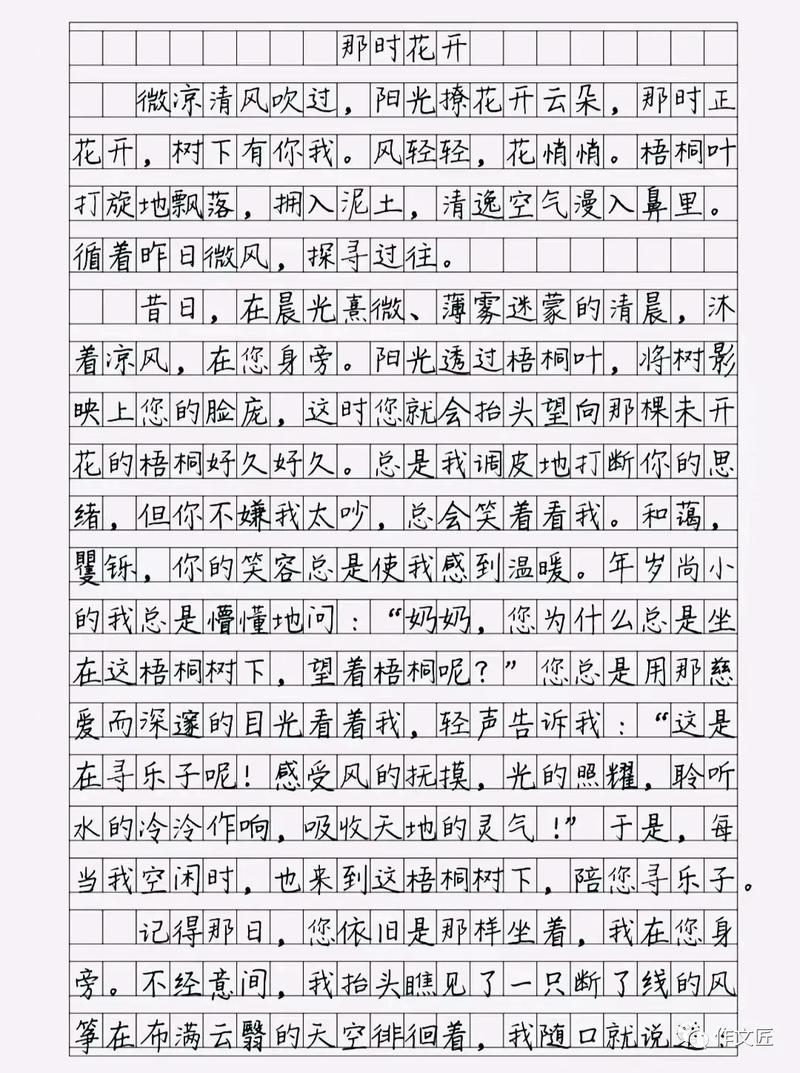 那时花开
微凉清风吹过，阳光撩花开云朵，那时正
花开，树下有你我。风轻轻，花悄悄。梧桐叶
打旋地飘落，拥入泥土，清逸空气漫入鼻里。
循着昨日微风，探寻过往。
昔日，在晨光熹微、薄雾迷蒙的清晨，沐
着凉风，在您身旁。阳光透过梧桐叶，将树影
映上您的脸庞，这时您就会抬头望向那棵未开
花的梧桐好久好久。总是我调皮地打断你的思
绪，但你不嫌我太吵，总会笑着看我。和蔼，
矍铄，你的笑容总是使我感到温暖。年岁尚小
的我总是懵懂地问：“奶奶，您为什么总是坐
在这梧桐树下，望着梧桐呢？”您总是用那慈
爱而深邃的目光看着我，轻声告诉我：“这是
在寻乐子呢！感受风的抚摸，光的照耀，聆听
水的泠泠作响，吸收天地的灵气！”于是，每
当我空闲时，也来到这梧桐树下，陪您寻乐子。
记得那日，您依旧是那样坐着，我在您身
旁。不经意间，我抬头瞧见了一只断了线的风
筝在布满云翳的天空徘徊着，我随口就说道：
作文匠